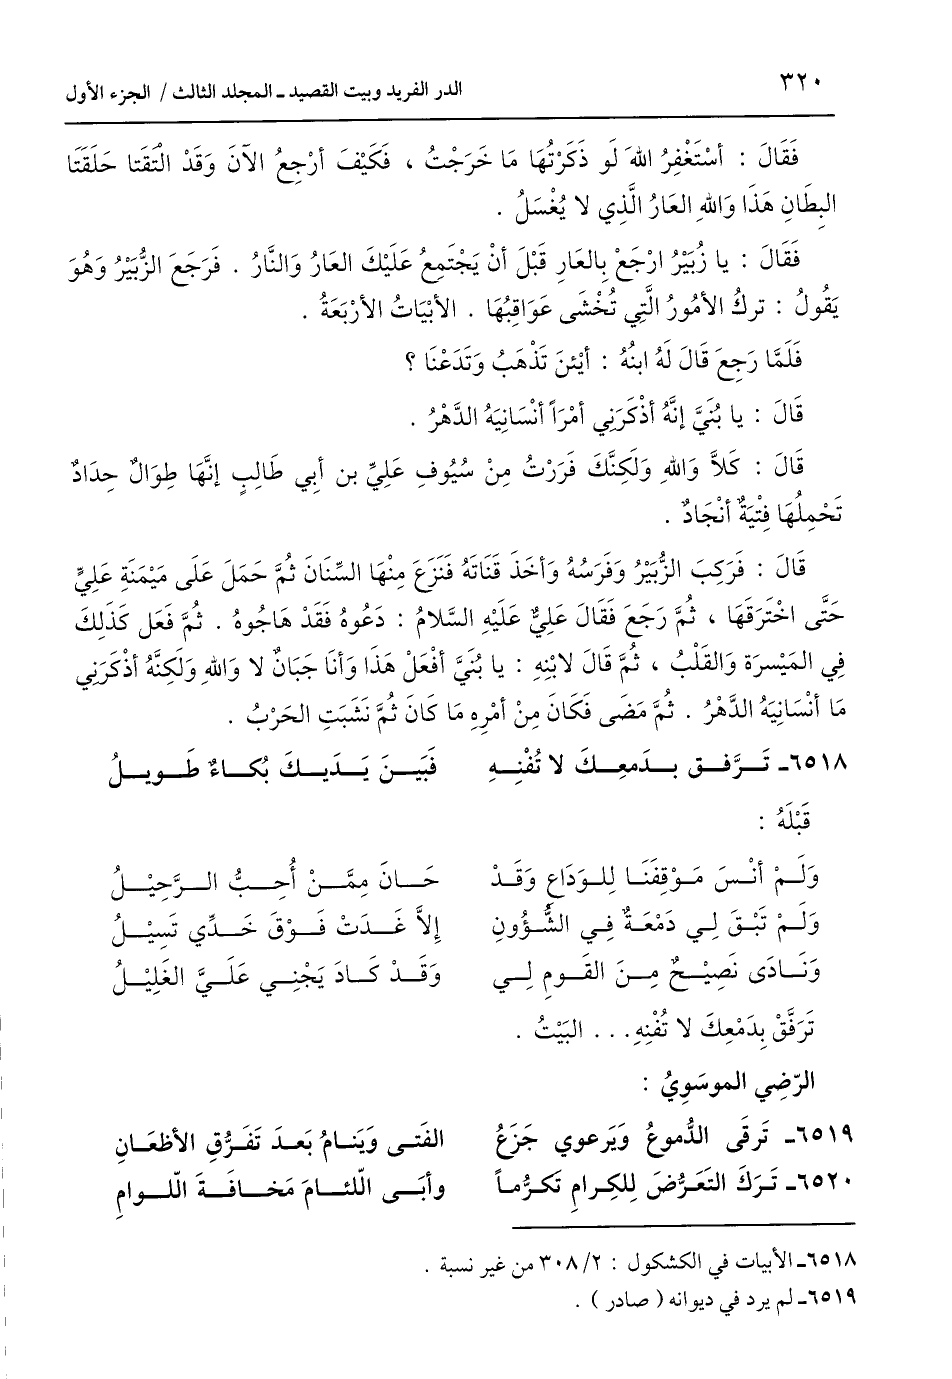 ٣٢٠
الدر الفريد وبيت القصيد ـ المجلد الثالث / الجزء الأول
فَقَالَ : أسْتَغْفِرُ اللهَ لَو ذَكَرْتُهَا مَا خَرَجْتُ ، فَكَيْفَ أرْجِعُ الآنَ وَقَدْ الْتَقَتا حَلَقَتَا
البِطَانِ هَذَا وَاللهِ العَارُ الَّذِي لا يُغْسَلُ .
فَقَالَ : يا زُبَيْرُ ارْجَعْ بِالعَارِ قَبْلَ أنْ يَجْتَمِعُ عَلَيْكَ العَارُ وَالنَّارُ . فَرَجَعَ الزُّبَيْرُ وَهُوَ
يَقُولُ : تركُ الأمُورُ الَّتِي تُخْشَى عَوَاقِبُهَا . الأبْيَاتُ الأرْبَعَةُ .
فَلَمَّا رَجِعَ قَالَ لَهُ ابنُهُ : أيْنَ تَذْهَبُ وَتَدَعْنَا ؟
قَالَ : يا بُنَيَّ إنَّهُ أذْكَرَنِي أمْرَاً أنْسَانِيَهُ الدَّهْرُ .
قَالَ : كَلاَّ وَاللهِ وَلَكِنَّكَ فَرَرْتُ مِنْ سُيُوفِ عَلِيِّ بن أبي طَالِبٍ إنَّهَا طِوَالٌ حِدَادٌ
تَحْمِلُهَا فِتْيَةٌ أنْجَادٌ .
قَالَ : فَرَكِبَ الزُّبَيْرُ وَفَرَسُهُ وَأخَذَ قَنَاتَهُ فَنَزَعَ مِنْهَا السِّنَانَ ثُمَّ حَمَلَ عَلَى مَيْمَنَةِ عَلِيٍّ
حَتَّى اخْتَرَقَهَا ، ثُمَّ رَجَعَ فَقَالَ عَلِيٌّ عَلَيْهِ السَّلامُ : دَعُوهُ فَقَدْ هَاجُوهُ . ثُمَّ فَعَل كَذَلِكَ
فِي المَيْسرَة وَالقَلْبُ ، ثُمَّ قَالَ لابْنِهِ : يا بُنَيَّ أفْعَلْ هَذَا وَأنا جَبَانٌ لا وَاللهِ وَلَكِنَّهُ أذْكَرَنِي
مَا أنْسَانِيَهُ الدَّهْرُ . ثُمَّ مَضَى فَكَانَ مِنْ أمْرِهِ مَا كَانَ ثُمَّ نَشَبَتِ الحَرْبُ .
٦٥١٨ـ تَـرَّفـق بـدَمعِـكَ لا تُفْنِـهِ فَبَيـنَ يَـدَيـكَ بُكـاءٌ طَـويـلُ
قَبْلَهُ :
وَلَـمْ أنْـسَ مَـوْقِفَنَـا لِلـوَدَاعِ وَقَـدْ حَـانَ مِمَّـنْ أُحِـبُّ الـرَّحِيْـلُ
وَلَـمْ تَبْـقَ لِـي دَمْعَـةٌ فِـي الشُّـؤُونِ إلاَّ غَـدَتْ فَـوْقَ خَـدِّي تَسِيْـلُ
وَنَـادَى نَصِيْـحٌ مِـنَ القَـومِ لِـي وَقَـدْ كَـادَ يَجْنِـي عَلَـيَّ الغَلِيْـلُ
تَرَفَّقْ بِدَمْعِكَ لا تُفْنِهِ . . . البَيْتُ .
الرّضِي الموسَويُ :
٦٥١٩ـ تَرقَى الدُّموعُ وَيَرعوي جَزَعُ الفَتـى وَيَنـامُ بَعـدَ تَفَـرُّقِ الأظعَـانِ
٦٥٢٠ـ تَـرَكَ التَعَـرُّضَ لِلكِـرامِ تَكـرُّمـاً وأبَـى اللّئـامَ مَخـافَـةَ اللّـوامِ
٦٥١٨ـ الأبيات في الكشكول : ٣٠٨/٢ من غير نسبة .
٦٥١٩ـ لم يرد في ديوانه ( صادر ) .